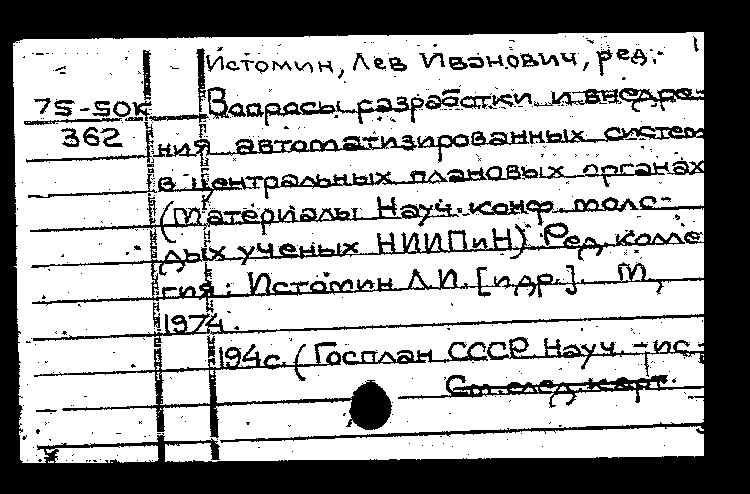 Истомин, Лев Иванович, ред.
75-50к Вопросы разработки и внедре-
362 ния автоматизированных систем
в центральных плановых органах
(Материалы Науч. конф. моло-
дых ученых НИИПиН) Ред. колле
гия: Истомин Л.И. [и др.]. М,
1974.
194с. (Госплан СССР Науч. -ис-
См. след. карт.